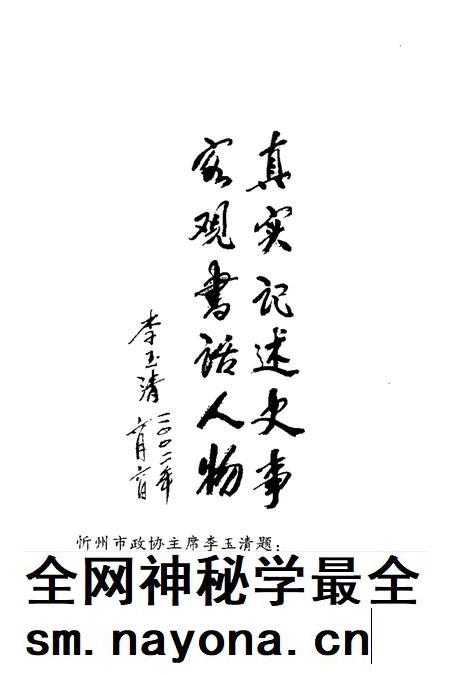 真实记述史事
客观书话人物
李玉清
二〇〇二年
六月六日
忻州市政协主席李玉清题：
全网神秘学最全
sm.nayona.cn